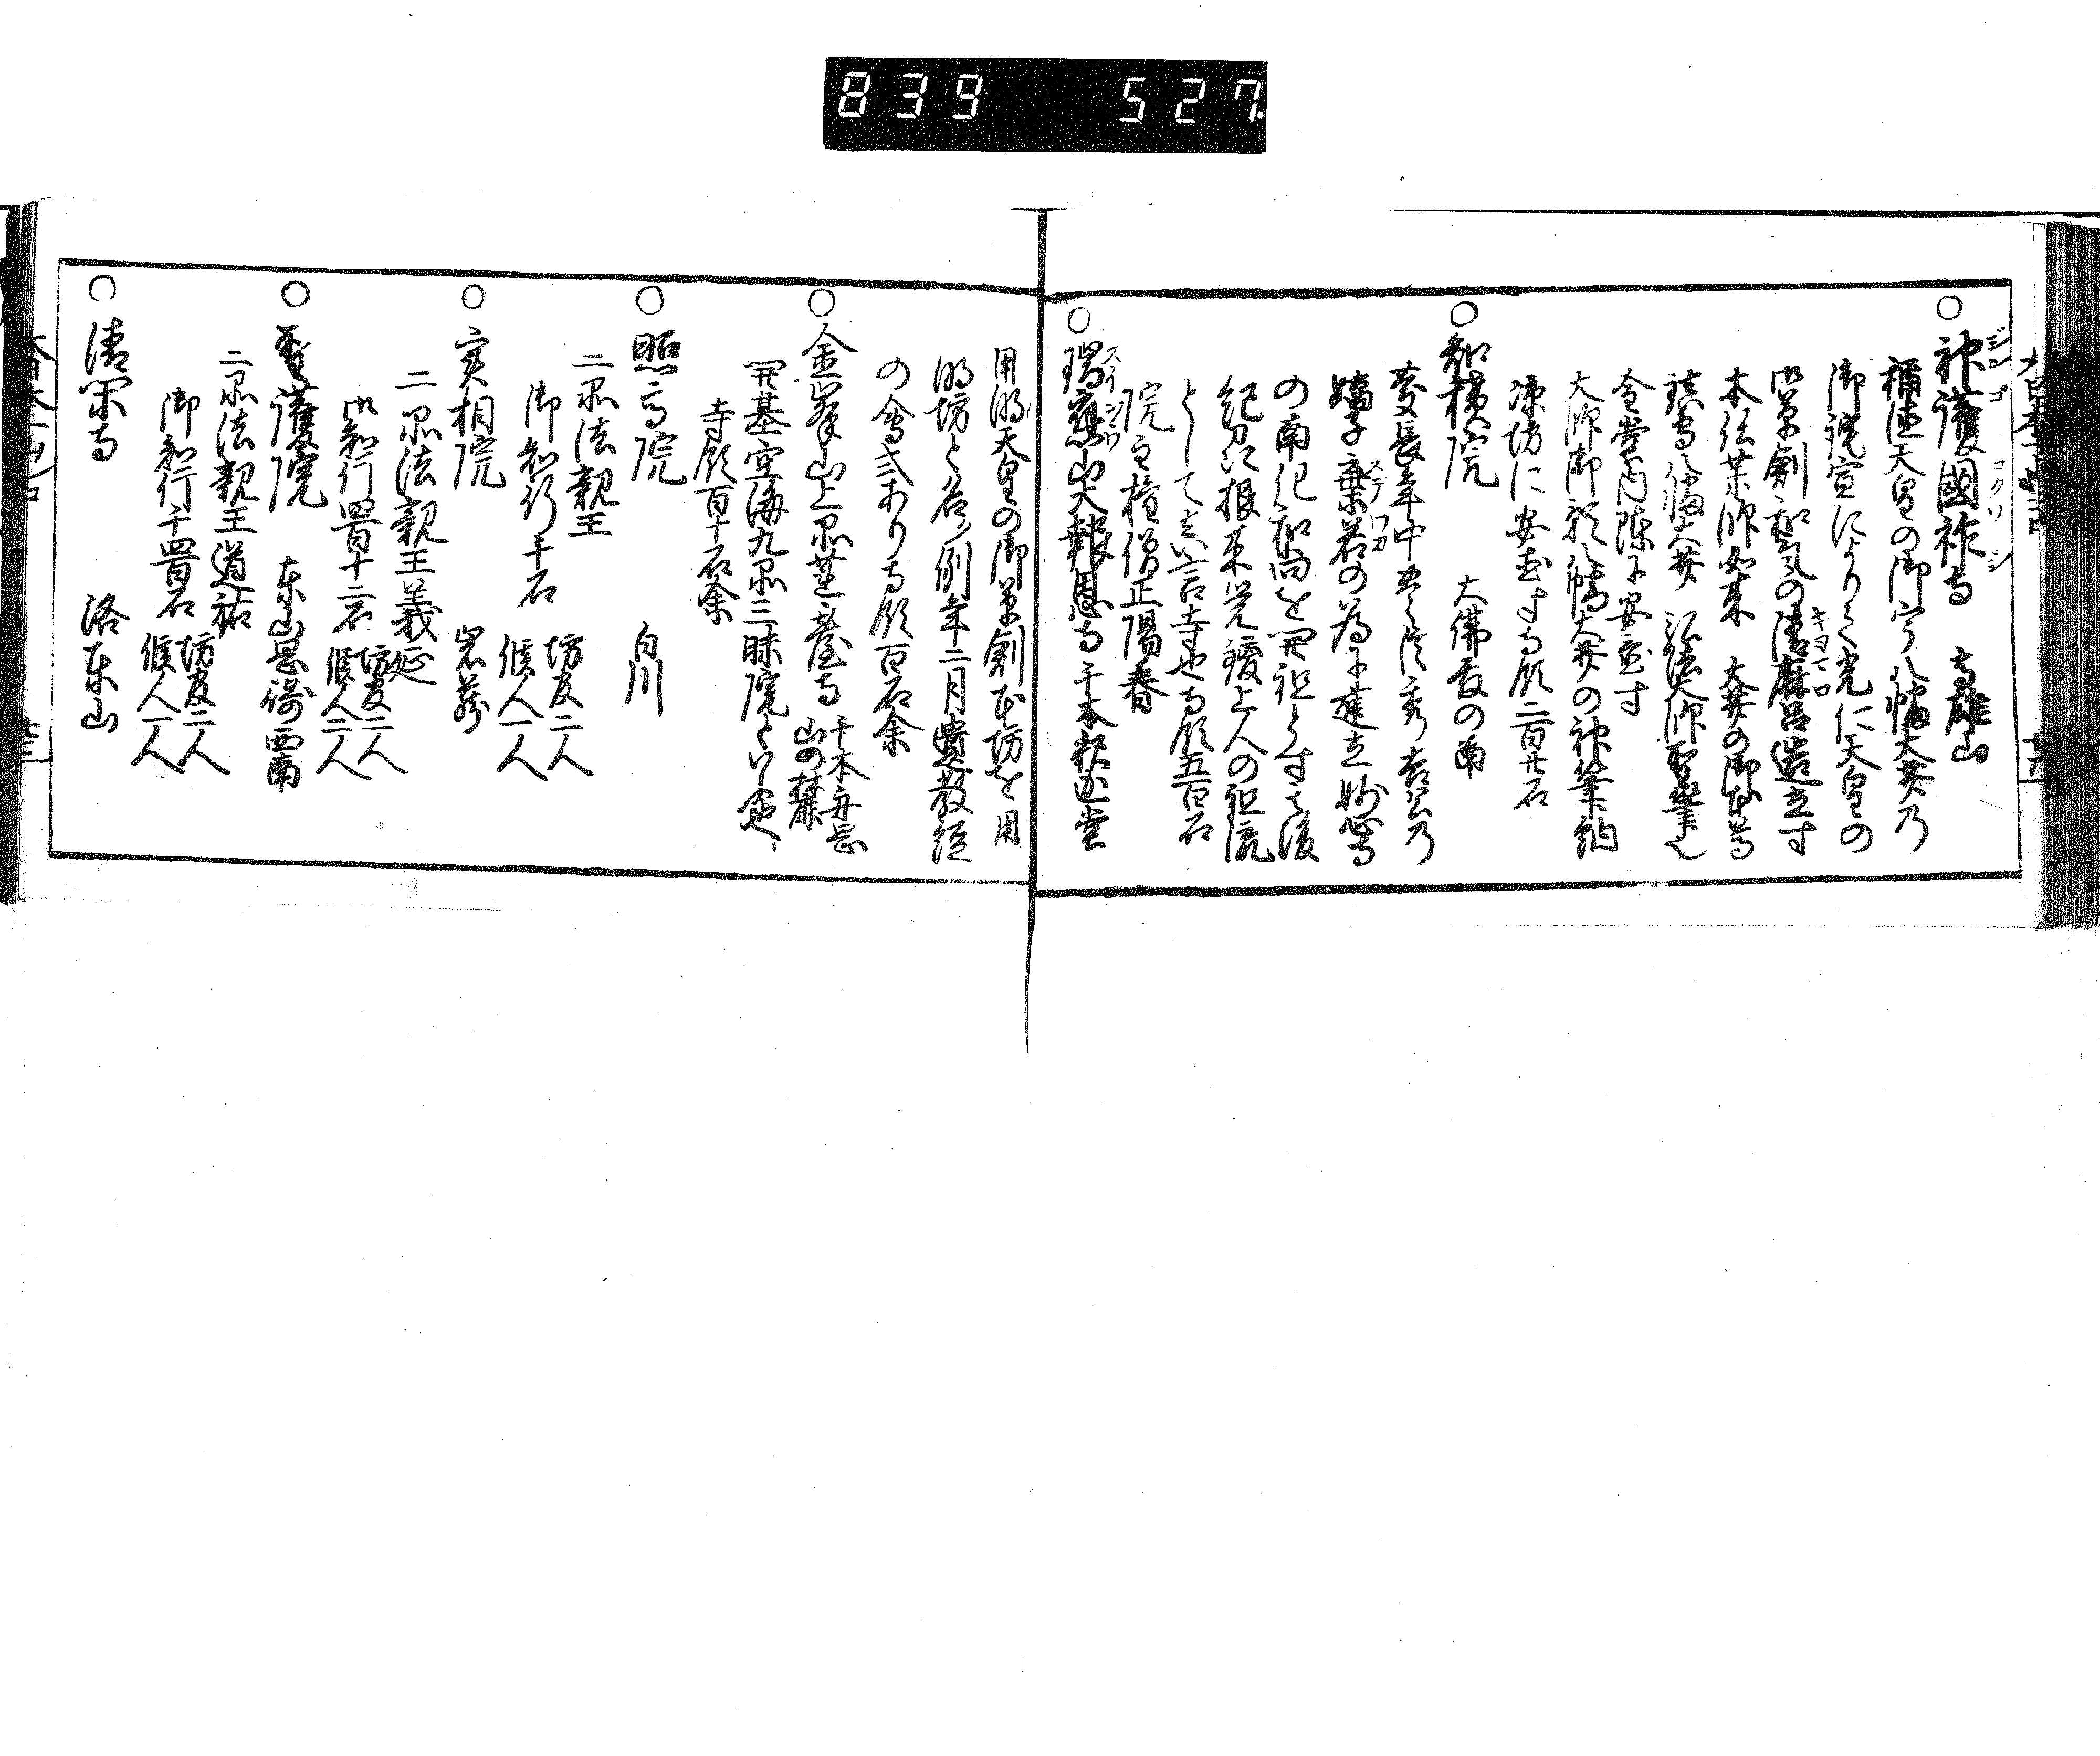 839 527
○神護國祚寺 高雄山
ジンゴ コクソ シ
稱徳天皇の御宇八幡大菩乃
御託宣によりて光仁天皇の
御草創和気の清麻呂造立す
キヨマロ
本伝薬師如来 大井の御本尊
鎮守八幡大井 弘法大師聖筆也
金堂内陣に安置す
大師御影八幡大井の神筆納
凉坊に安置する寺領二百廿石
○智積院 大佛殿の南
慶長年中豊臣秀吉公乃
嫡子棄若の為に建立
ステワカ
の南化和尚を開祖とす其後
紀刕根来覚鑁上人の祖流
として真言寺也寺領五百石
院主権僧正陽春
○瑞應山大報恩寺 千本釈迦堂
スイヲウ
用明天皇の御草創本坊を用
明坊と名ク例年二月遺教経
の會式あり寺領百石余
○金峯山上品蓮臺寺 千本舟岡
山の麓
開基空海九品三昧院といふ也
寺領百十石余
○照高院 白川
二品法親王
御知行千石 坊官二人
侯人一人
○実相院 岩蔵
二品法親王義延
御知行四百十二石 坊官二人
侯人二人
○聖護院 東山黒谷西南
二品法親王道祐
御知行千四百石 坊官二人
侯人一人
○清閑寺 洛東山